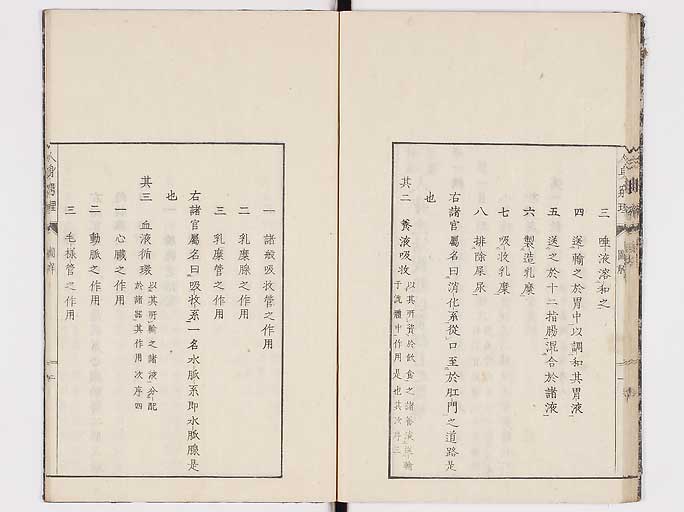 三 唾液溶和之
四 送輸之於胃中以調和其胃液
五 送之於十二指腸混合於諸液
六 製造乳糜
七 吸收乳糜
八 排除屎尿
右諸官屬名曰消化系從口至於肛門之道路是
也
其二 養液吸收 以其所資於飲食之諸養液輸
于流體中作用是也其次序三
一 諸般吸收管之作用
二 乳糜腺之作用
三 乳糜管之作用
右諸官屬名曰吸收系一名水脈系即水脈腺是
也
其三 血液循環 以其所輸之諸液分配
於諸器其作用次序四
一 心臟之作用
二 動脈之作用
三 毛樣管之作用